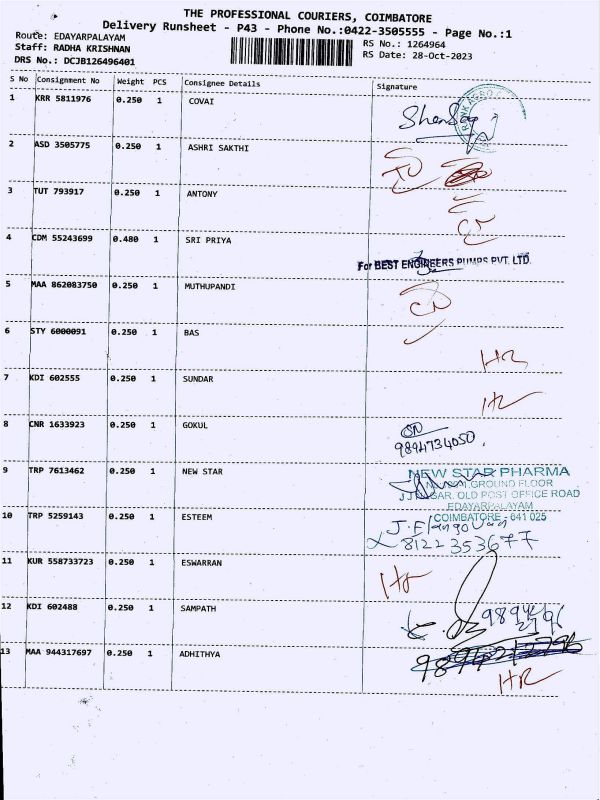 THE PROFESSIONAL COURIERS, COIMBATORE
Delivery Runsheet - P43 - Phone No.:0422-3505555 - Page No.:1
Route: EDAYARPALAYAM
Staff: RADHA KRISHNAN
DRS No.: DCJB126496401
RS No.: 1264964
RS Date: 28-Oct-2023
S No Consignment No Weight PCS Consignee Details Signature
1 KRR 5811976 0.250 1 COVAI
2 ASD 3505775 0.250 1 ASHRI SAKTHI
3 TUT 793917 0.250 1 ANTONY
4 CDM 55243699 0.480 1 SRI PRIYA
For BEST ENGINEERS PUMPS PVT. LTD.
5 MAA 862083750 0.250 1 MUTHUPANDI
6 STY 6000091 0.250 1 BAS
HR
7 KDI 602555 0.250 1 SUNDAR
HR
8 CNR 1633923 0.250 1 GOKUL
9894734050.
9 TRP 7613462 0.250 1 NEW STAR
NEW STAR PHARMA
GROUND FLOOR
J.J.NAGAR, OLD POST OFFICE ROAD
EDAYARPALAYAM
COIMBATORE - 641 025
10 TRP 5259143 0.250 1 ESTEEM
J. Elangovan
8122353677
11 KUR 558733723 0.250 1 ESWARRAN
HR
12 KDI 602488 0.250 1 SAMPATH
13 MAA 944317697 0.250 1 ADHITHYA
HR